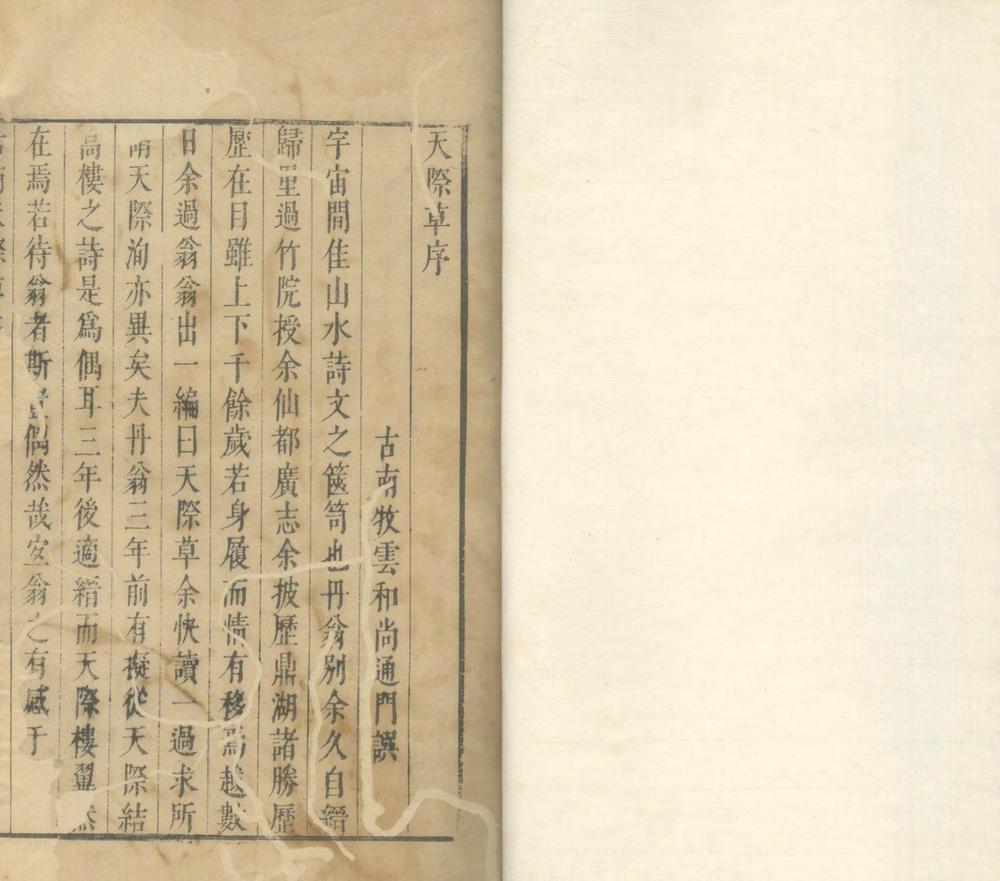 天際草序
古南牧雲和尚通門譔
宇宙間佳山水詩文之篋笥也丹翁別余久自縉
歸里過竹院授余仙都廣志余披歷鼎湖諸勝歷
歷在目雖上下千餘歲若身履而情有移焉越數
日余過翁翁出一編曰天際草余快讀一過求所
謂天際洵亦異矣夫丹翁三年前有擬從天際結
高樓之詩是爲偶耳三年後適縉而天際樓翼然
在焉若待翁者斯豈偶然哉宐翁之有感于